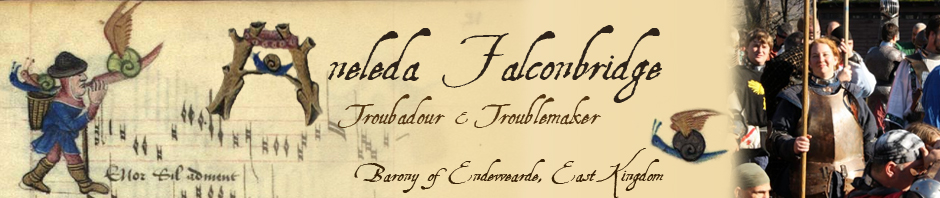 Aneleda Falconbridge
Troubadour & Troublemaker
Barony of Endewearde, East Kingdom